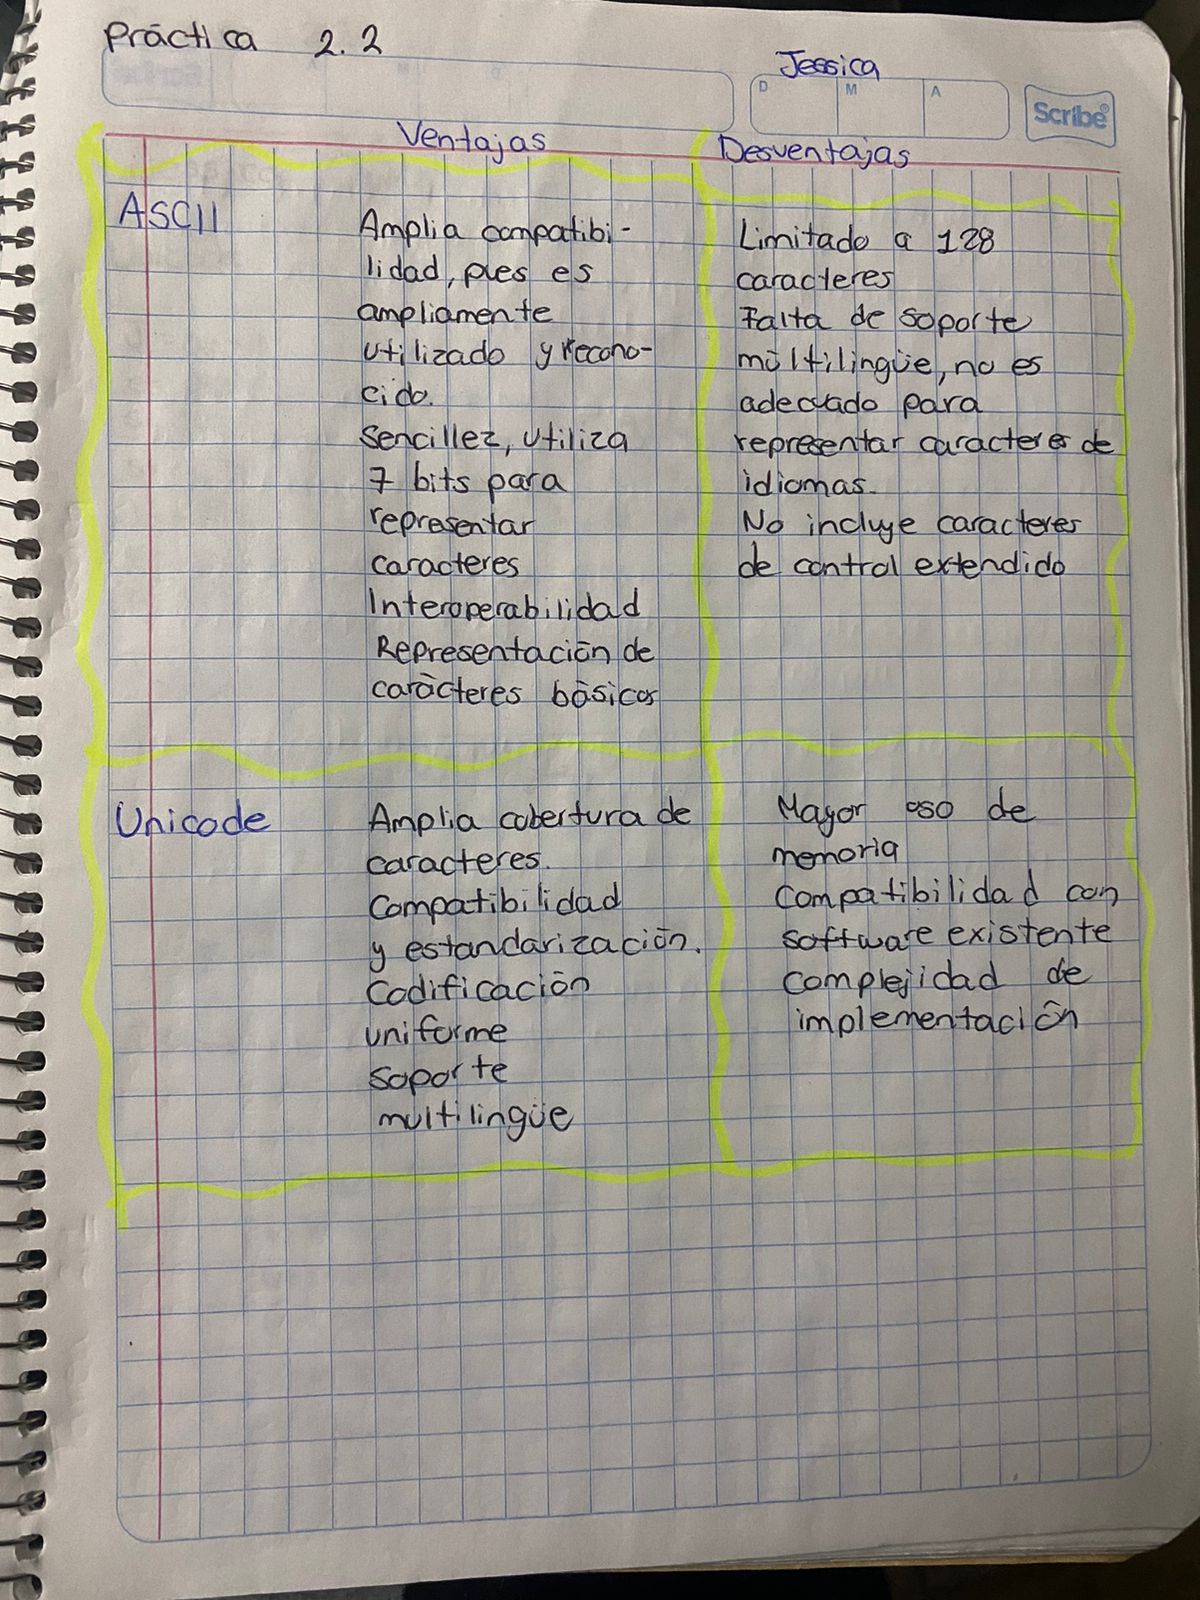 Práctica 2.2
Jessica
D M A
Scribe
Ventajas
Desventajas
ASCII
Amplia compatibi-
lidad, pues es
ampliamente
utilizado y recono-
cido.
sencillez, utiliza
7 bits para
representar
caracteres
Interoperabilidad
Representación de
carácteres básicos
Limitado a 128
caracteres
Falta de soporte
múltilingüe, no es
adecuado para
representar caracteres de
idiomas.
No incluye caracteres
de control extendido
Unicode
Amplia cobertura de
caracteres.
Compatibilidad
y estandarización.
Codificación
uniforme
soporte
multilingüe
Mayor uso de
memoria
Compatibilidad con
software existente
Complejidad de
implementación